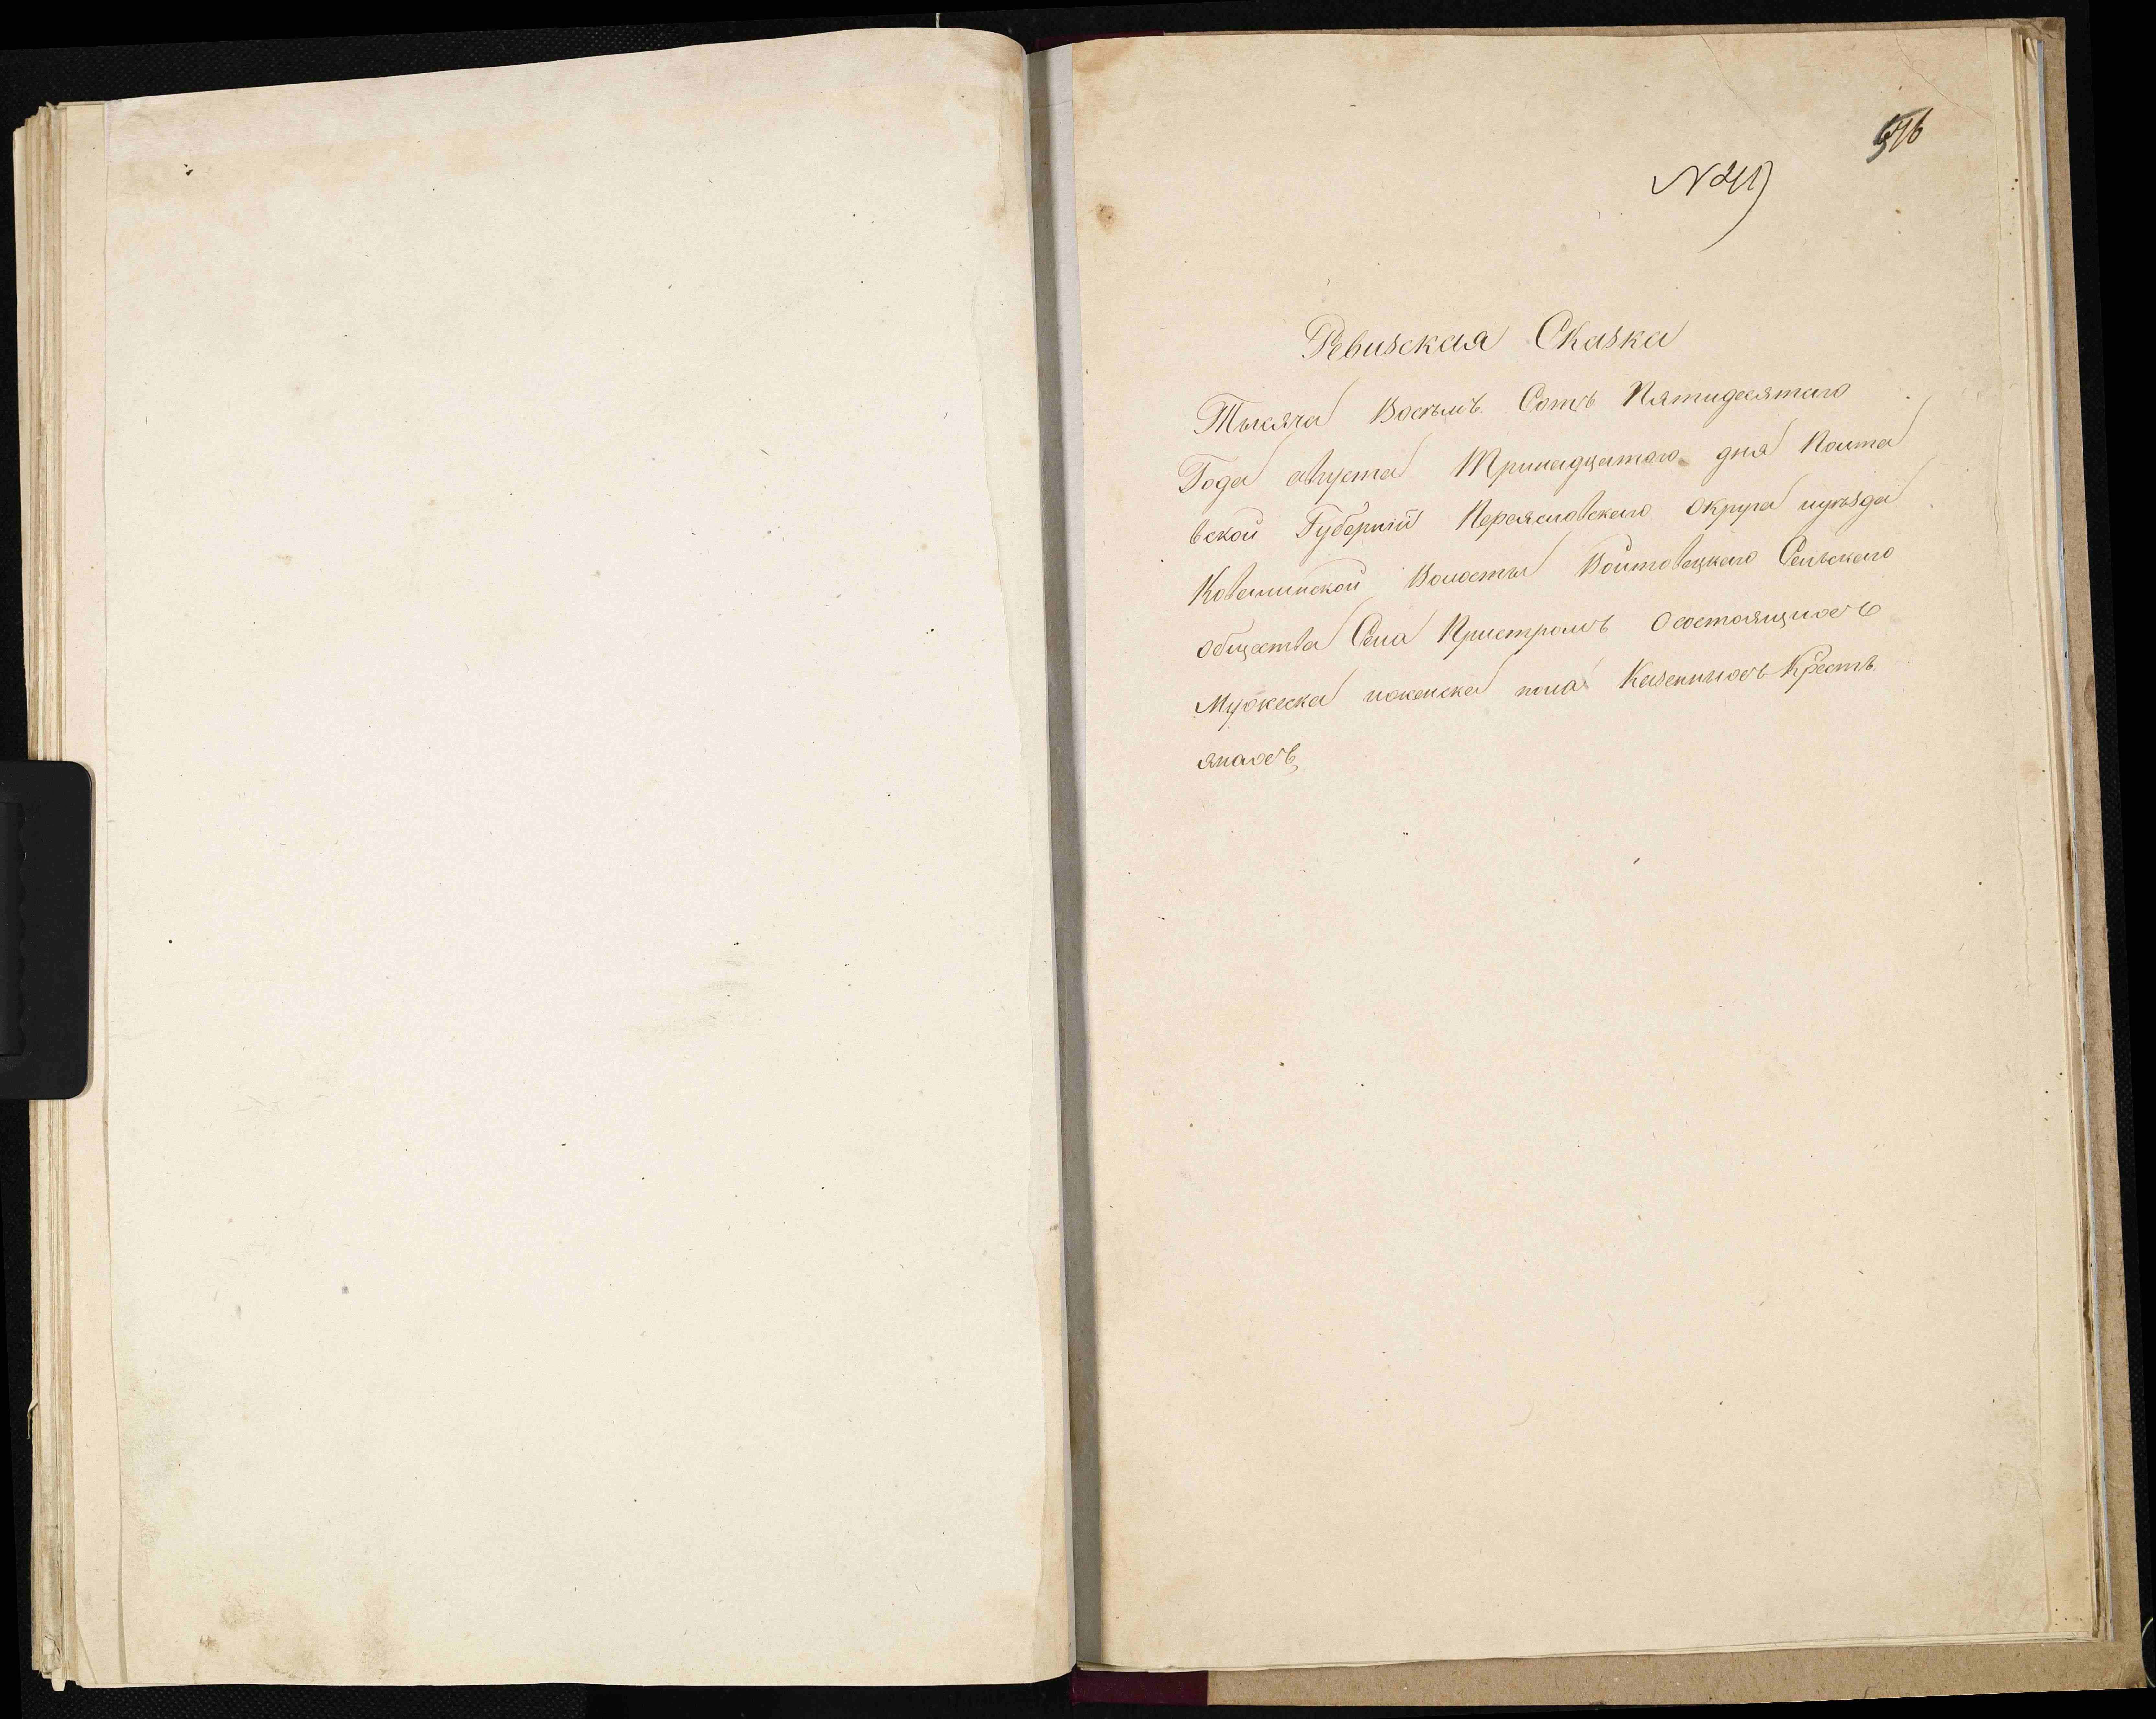 N 219
Ревизская Сказка
Тысяча Восѣмь Сотъ Пятидесятаго
Года августа Тринадцатаго дня Полта
вской Губерніи Переясловскаго Округа иуѣзда
Ковалинской Волосты Войтовецкаго Сельскаго
общества Села Пристромъ Осостоящихъ
Мужеска иженска пола Казенныхъ Кресть
янахъ,